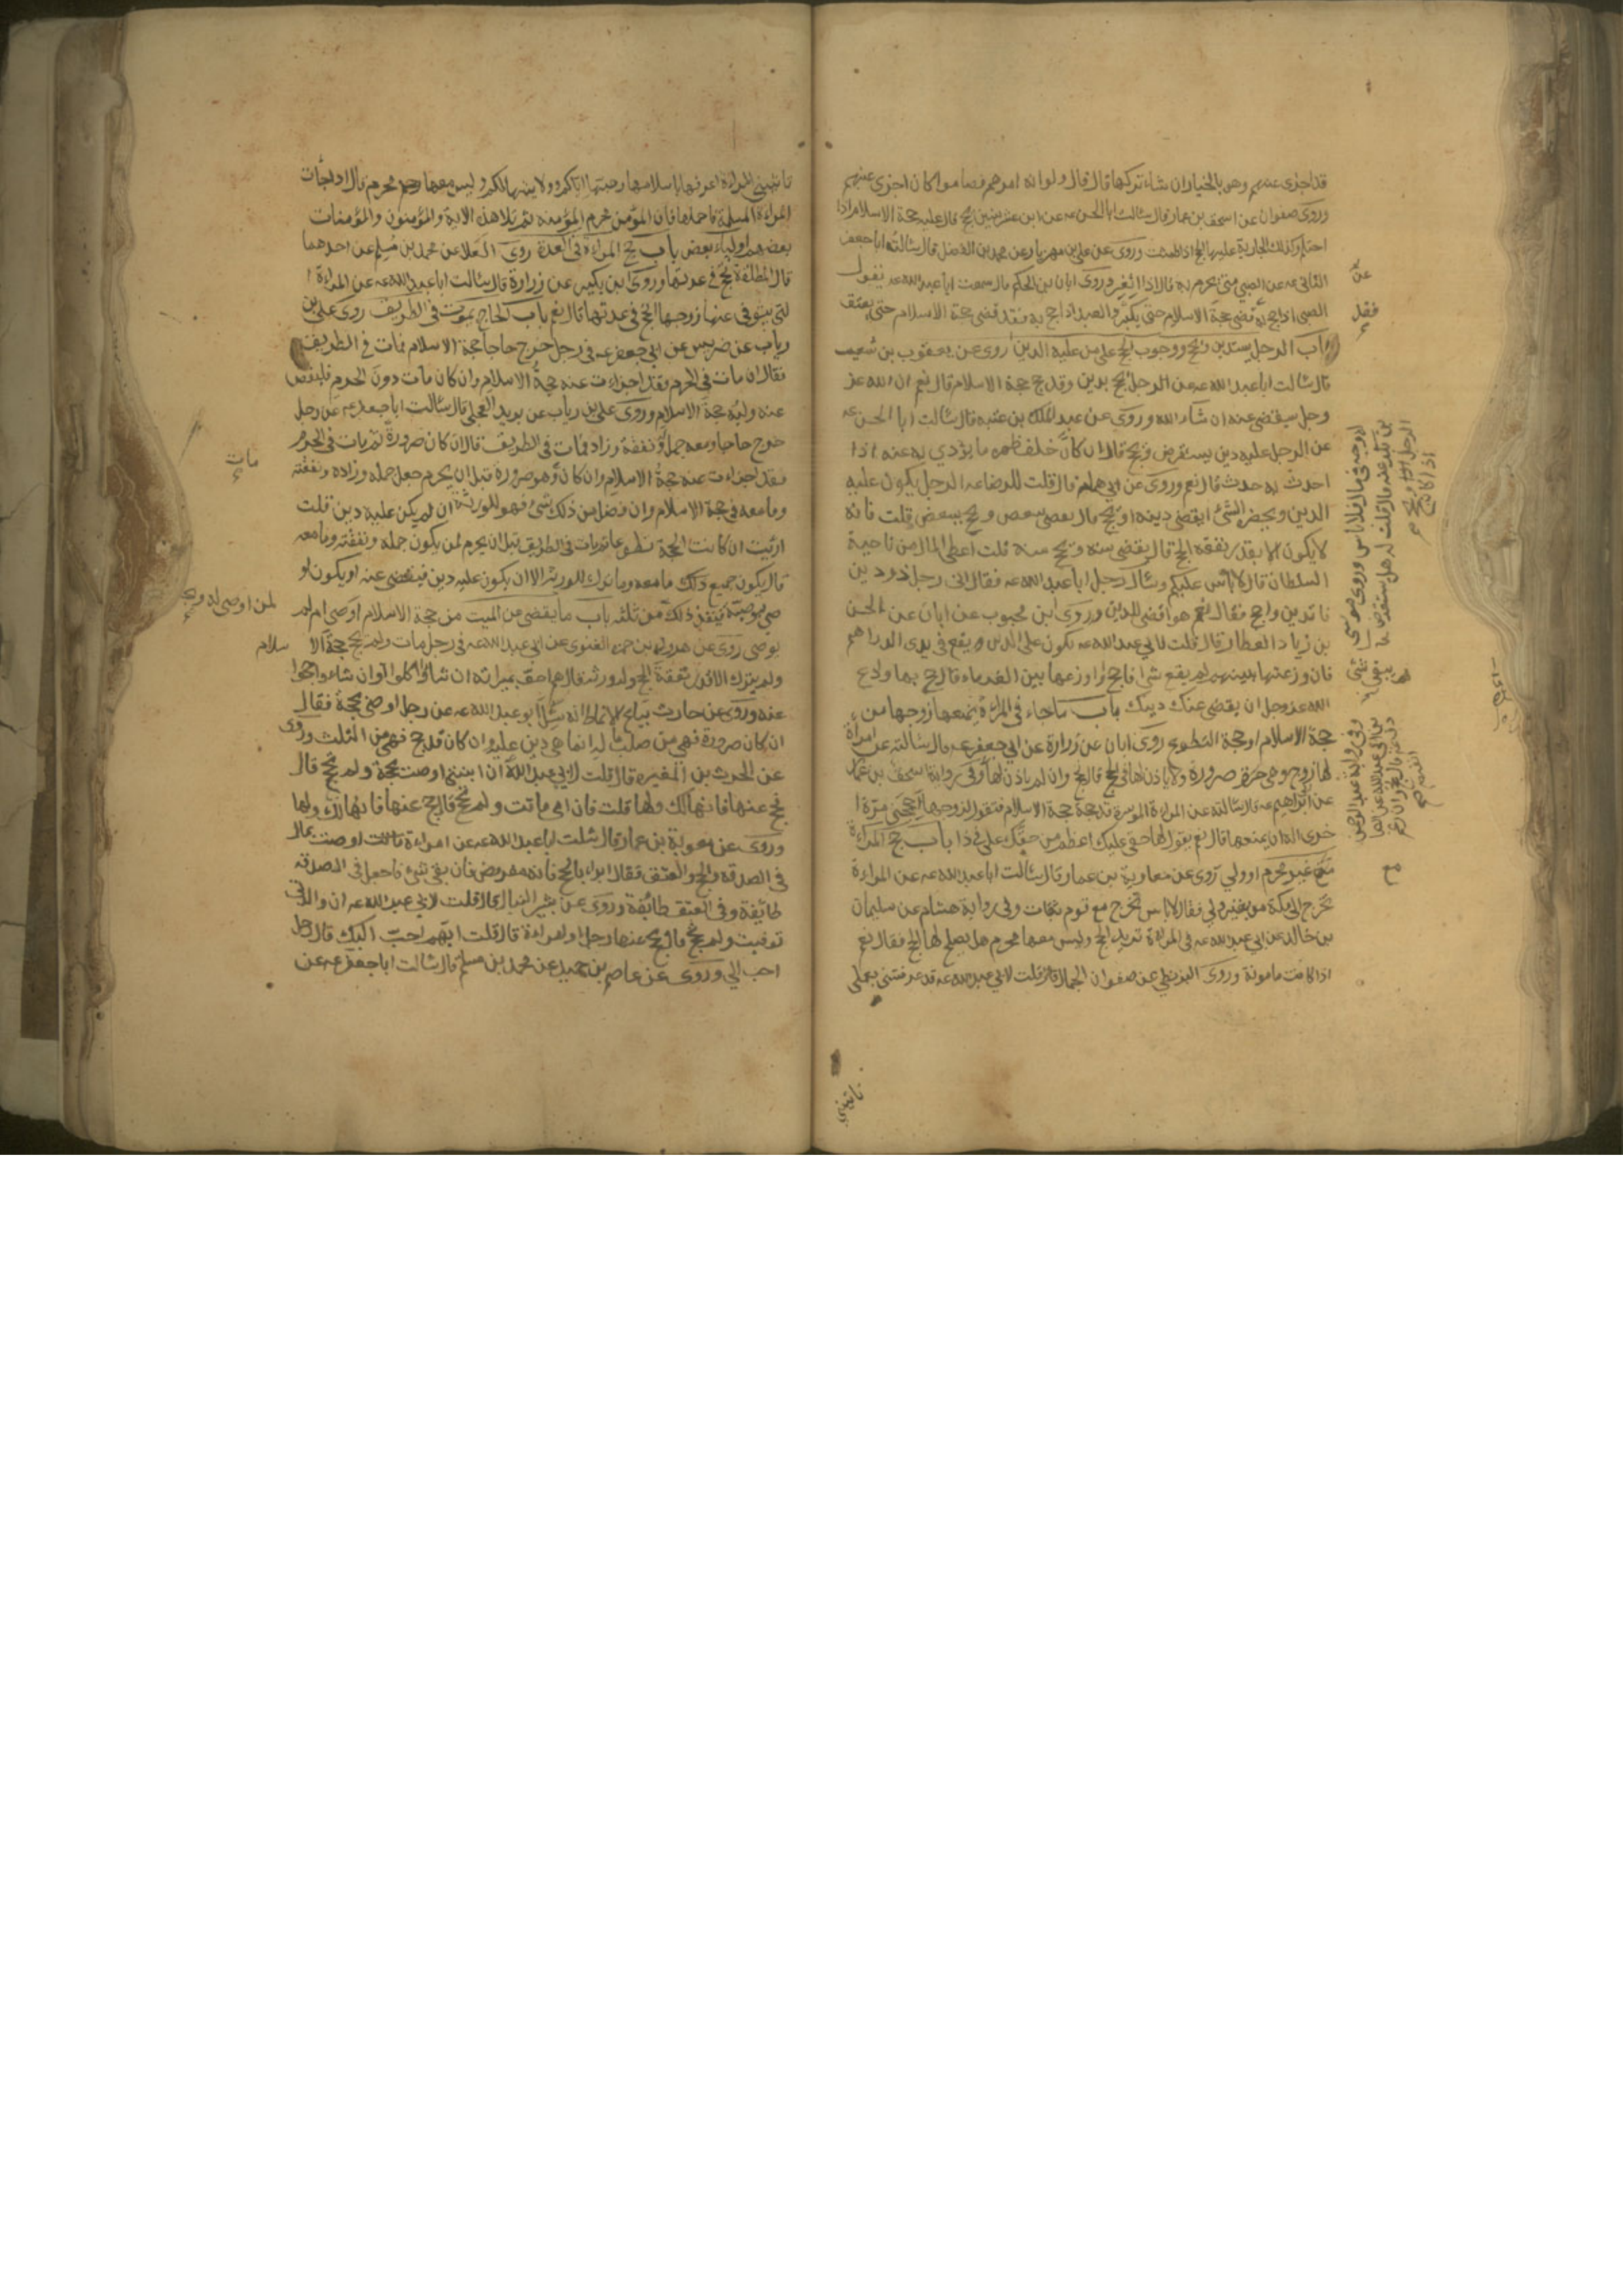 قد اجزى عنهم وهو بالخيار ان شاء تركها قال قال ولو انه امرهم فصاموا كان اجزى عنهم
وروى صفوان عن اسحق بن عمار قال سئالت ابا الحسن عه عن ابن عشر سنين يحج قال عليه حجة الاسلام اذا
احتلم وكذلك الجارية عليها الحج اذا طمثت وروى عن علي بن مهزيار عن محمد بن الفضل قال سئالت ابا جعفر
الثاني عه عن الصبي متى يحرم به قال اذا اثغر وروى ابان بن الحكم قال سمعت ابا عبد الله عه يقول
الصبي اذا حج به قضى حجة الاسلام حتى يكبر والعبد اذا حج به فقد قضى حجة الاسلام حتى يعتق
باب الرجل يستدين ويحج ووجوب الحج على من عليه الدين روى عن يعقوب بن شعيب
قال سئالت ابا عبد الله عه عن الرجل يحج بدين وقد حج حجة الاسلام قال نعم ان الله عز
وجل سيقضي عنه ان شاء الله وروى عن عبد الملك بن عتبه قال سئالت ابا الحسن عه
عن الرجل عليه دين يستقرض ويحج قال ان كان خلف ظهره ما يؤدي به عنه اذا
احدث به حدث قال نعم وروى عن ابي همام قال قلت للرضا عه الرجل يكون عليه
الدين ويحضر الشئ ايقضي دينه او يحج قال يقضي ببعض ويحج ببعض قلت فانه
لا يكون الا بقدر نفقه الحج قال يقضي سنه ويحج سنه قلت اعطى المال من ناحية
السلطان قال لا بأس عليكم وسئال رجل ابا عبد الله عه فقال اني رجل ذو دين
فاتدين واحج فقال نعم هو اقضى للدين وروى ابن محبوب عن ابان عن الحسن
بن زياد العطار قال قلت لابي عبد الله عه يكون علي الدين ويقع في يدي الدراهم
فان وزعتها بينهم لم يقع شئا فاحج بها او وزعها بين الغرماء قال حج بها وادع
الله عز وجل ان يقضي عنك دينك باب ما جاء في المراة يمنعها زوجها من
حجة الاسلام او حجة التطوع روى ابان عن زرارة عن ابي جعفر عه قال سئالته عن امرأة
لها زوج وهي صرورة ولا ياذن لها في الحج قال تحج وان لم ياذن لها وفي رواية اسحق بن عمار
عن ابي ابراهيم عه قال سئالته عن المراءة الموسرة قد حجت حجة الاسلام فتقول لزوجها احجني مرة ا
خرى اله ان يمنعها قال نعم يقول لها حقي عليك اعظم من حقك علي في ذا باب حج المراءة
مع غير محرم او ولي روى عن معاوية بن عمار قال سئالت ابا عبد الله عه عن المراءة
تخرج الى مكة من غير ولي فقال لا باس تخرج مع قوم ثقات وفي رواية هشام عن سليمان
بن خالد عن ابي عبد الله عه في المراءة تريد الحج وليس معها محرم هل يصلح لها الحج فقال نعم
اذا كانت مامونة وروى البزنطي عن صفوان الجمال قال قلت لابي عبد الله عه قد عرفتني بعملي
تاتيني
تاتيني المراءة اعرفها باسلامها وحبها اياكم وولايتها لكم وليس معها محرم قال اذا جاءت
المراءة المسلمة فاحملها فان المؤمن محرم المؤمنه ثم تلا هذه الاية والمؤمنون والمؤمنات
بعضهم اولياء بعض باب حج المراءة في العدة روى العلا عن محمد بن مسلم عن احدهما
قال المطلقة تحج في عدتها وروى ابن بكير عن زرارة قال سئالت ابا عبد الله عه عن المراءة ا
لتي يتوفى عنها زوجها اتحج في عدتها قال نعم باب الحاج يموت في الطريق روى علي بن
رياب عن ضريس عن ابي جعفر عه في رجل خرج حاجا حجة الاسلام فمات في الطريق
فقال ان مات في الحرم فقد اجزاءت عنه حجة الاسلام وان كان مات دون الحرم فليقض
عنه وليه حجة الاسلام وروى علي بن رياب عن بريد العجلي قال سئالت ابا جعفر عه عن رجل
خرج حاجا ومعه جمل ونفقة وزاد فمات في الطريق قال ان كان صرورة ثم مات في الحرم
فقد اجزاءت عنه حجة الاسلام وان كان وهو صرورة قبل ان يحرم جعل جمله وزاده ونفقته
وما معه في حجة الاسلام وان فضل من ذلك شئ فهو للورثة ان لم يكن عليه دين قلت
ارئيت ان كانت الحجة تطوعا ثم مات في الطريق قبل ان يحرم لمن يكون جمله ونفقته وما معه
قال يكون جميع ذلك ما معه وما ترك للورثة الا ان يكون عليه دين فيقضى عنه او يكون او
صى بوصية فينفذ ذلك من ثلثه باب ما يقضى عن الميت من حجة الاسلام اوصى ام لم
يوصى روى عن هرون بن حمزه الغنوي عن ابي عبد الله عه في رجل مات ولم يحج حجة الا سلام
ولم يترك الا قدر نفقة الحج وله ورثه قال هم احق بميراثه ان شاؤا اكلوا وان شاءوا حجوا
عنه وروى عن حارث بياع الانماط انه سئل ابو عبد الله عه عن رجل اوصى بحجة فقال
ان كان صرورة فهي من صلب ماله انما هي دين عليه وان كان قد حج فهي من الثلث وروى
عن الحرث بن المغيره قال قلت لابي عبد الله ان ابنتي اوصت بحجة ولم تحج قال
تحج عنها فانها لك ولها قلت فان امي ماتت ولم تحج قال حج عنها فانها لك ولها
وروى عن معوية بن عمار قال سئلت ابا عبد الله عه عن امراءة اوصت بمال
في الصدقه والحج والعتق فقال ابداء بالحج فانه مفروض فان بقي شئ فاجعل في الصدقه
طائفة وفي العتق طائفة وروى عن بشير النبال قال قلت لابي عبد الله عه ان والدتي
توفيت ولم تحج قال يحج عنها رجل او امراءة قال قلت ايهم احب اليك قال رجل
احب الي وروى عن عاصم بن حميد عن محمد بن مسلم قال سئالت ابا جعفر عه عن
عن
فقل
مع
مات
لمن اوصى له